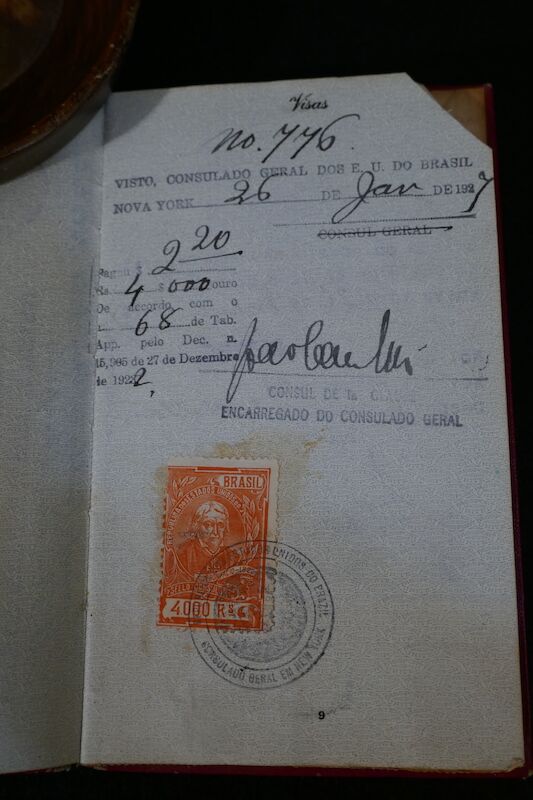 Visas
No. 776.
VISTO, CONSULADO GERAL DOS E. U. DO BRASIL
NOVA YORK 26 DE Jan DE 1927
CONSUL GERAL
Pagou $ 2 20
Rs. 4 $ 000 ouro
De accordo com o
68 de Tab.
App. pelo Dec. n.
15,905 de 27 de Dezembro
de 1922,
CONSUL DE 1a CLASSE
ENCARREGADO DO CONSULADO GERAL
BRASIL
4000 Rs
UNIDOS DO BRAZIL
CONSULADO GERAL EM NEW YORK
9